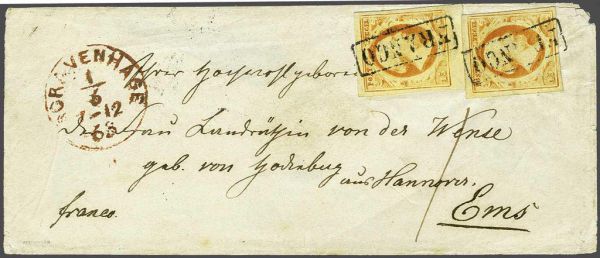 FRANCO
FRANCO
'SGRAVENHAGE
1
6
7-12
63
Ihrer Hochwohlgeboren
der Frau Landräthin von der Wense
geb. von Hodenberg
aus Hannover.
franco.
Ems